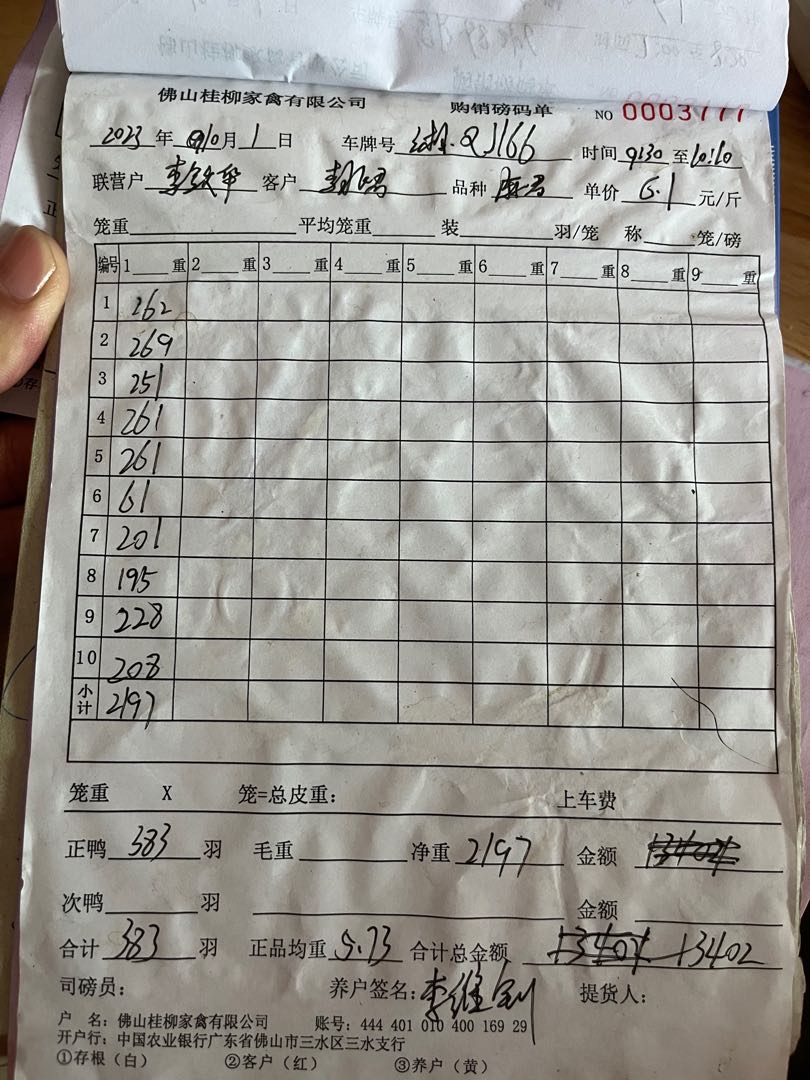 佛山桂柳家禽有限公司 购销磅码单 NO 0003777
2023 年 10 月 1 日 车牌号 QJ166 时间 9:30 至 10:10
联营户 客户 品种 单价 6.1 元/斤
笼重 平均笼重 装 羽/笼 称 笼/磅
编号 1 重 2 重 3 重 4 重 5 重 6 重 7 重 8 重 9 重
1 262
2 269
3 251
4 261
5 261
6 61
7 201
8 195
9 228
10 208
小计 2197
笼重 X 笼=总皮重: 上车费
正鸭 383 羽 毛重 净重 2197 金额
次鸭 羽 金额
合计 383 羽 正品均重 5.73 合计总金额 13402
司磅员: 养户签名: 李维 提货人:
户 名: 佛山桂柳家禽有限公司 账号: 444 401 010 400 169 29
开户行: 中国农业银行广东省佛山市三水区三水支行
①存根(白) ②客户(红) ③养户(黄)